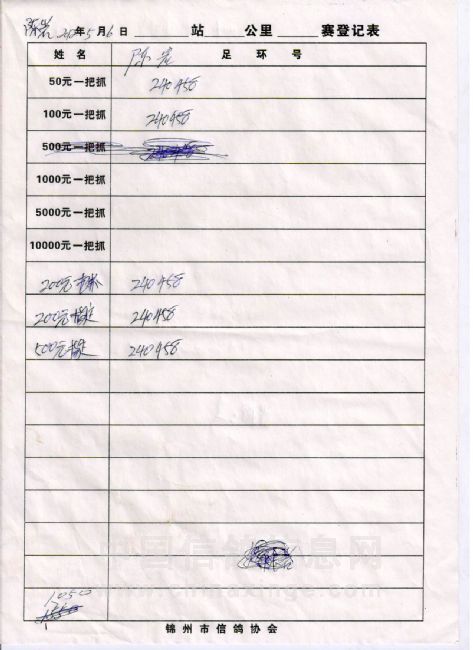 年5月6日 站 公里 赛登记表
姓名 足环号
50元一把抓 240458
100元一把抓 240458
500元一把抓
1000元一把抓
5000元一把抓
10000元一把抓
200元 240458
200元 指定 240458
500元 指定 240458
中国信鸽信息网
www.chinaxinge.com
1050
锦州市信鸽协会